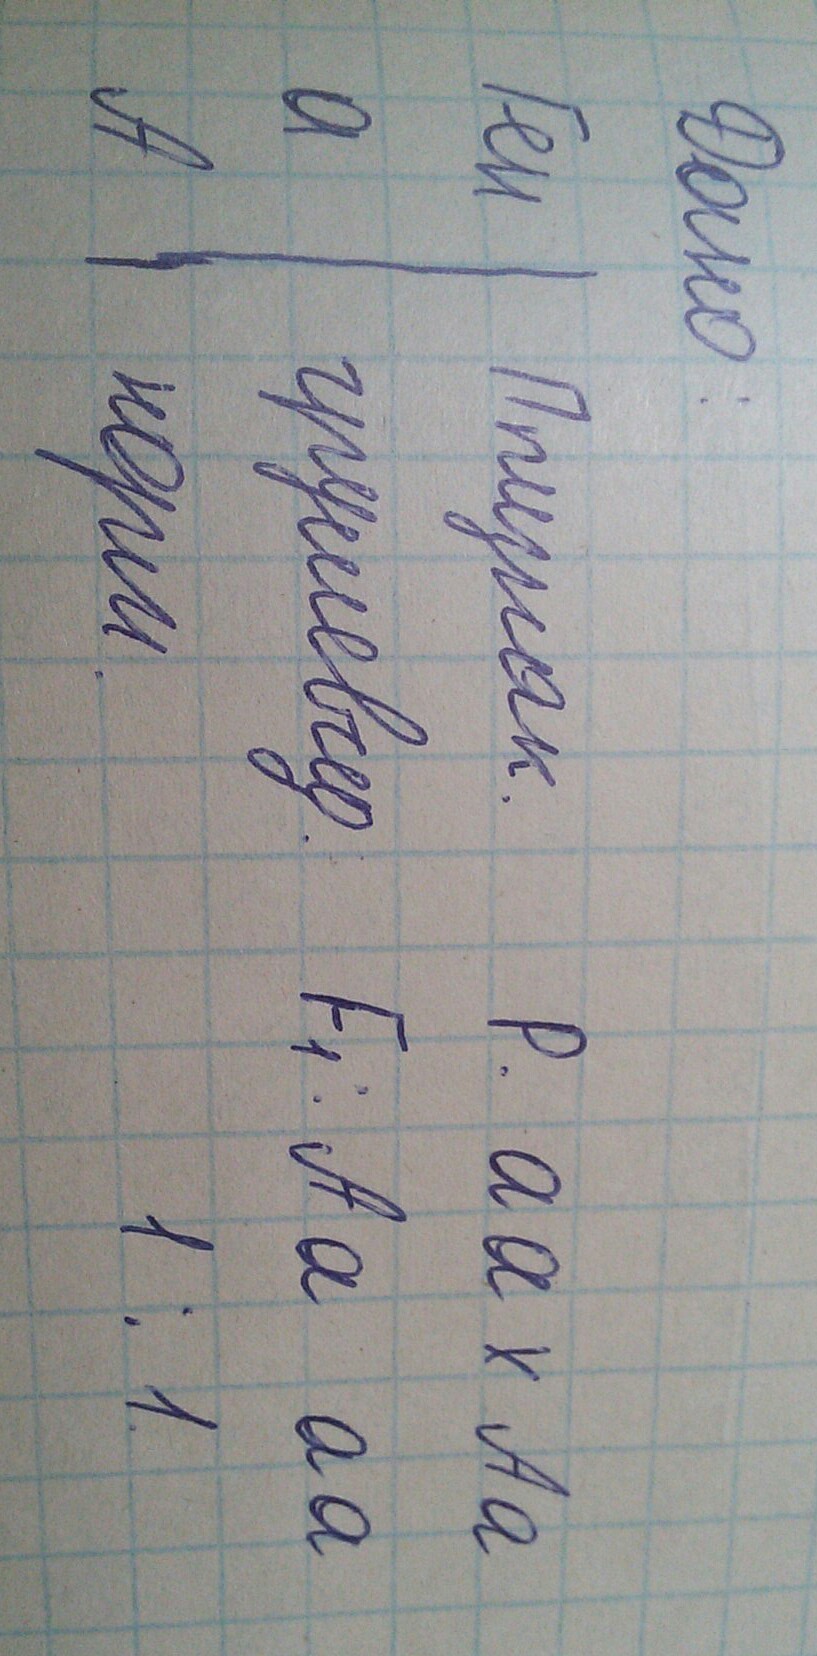 Дано:
Ген | Признак. P. аа х Аа
а | грушевид. F1: Аа аа
А | норм. 1 : 1.